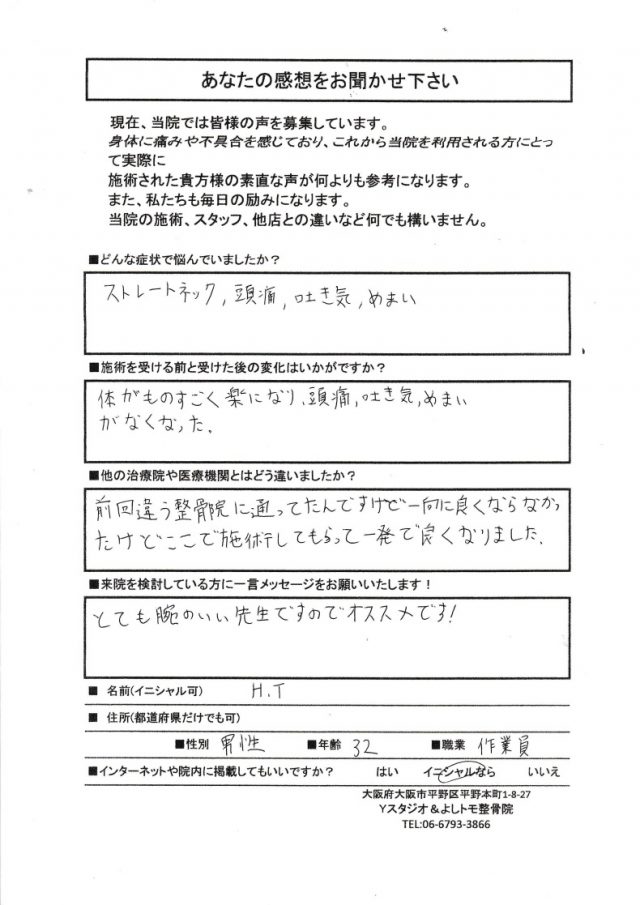 あなたの感想をお聞かせ下さい
現在、当院では皆様の声を募集しています。
身体に痛みや不具合を感じており、これから当院を利用される方にとっ
て実際に
施術された貴方様の素直な声が何よりも参考になります。
また、私たちも毎日の励みになります。
当院の施術、スタッフ、他店との違いなど何でも構いません。
■どんな症状で悩んでいましたか？
ストレートネック, 頭痛, 吐き気, めまい
■施術を受ける前と受けた後の変化はいかがですか？
体がものすごく楽になり、頭痛, 吐き気, めまい
がなくなった。
■他の治療院や医療機関とはどう違いましたか？
前回違う整骨院に通ってたんですけど一向に良くならなかっ
たけどここで施術してもらって一発で良くなりました。
■来院を検討している方に一言メッセージをお願いいたします！
とても腕のいい先生ですのでオススメです!
■ 名前(イニシャル可) H.T
■ 住所(都道府県だけでも可)
■性別 男性 ■年齢 32 ■職業 作業員
■インターネットや院内に掲載してもいいですか？ はい イニシャルなら いいえ
大阪府大阪市平野区平野本町1-8-27
Ｙスタジオ＆よしトモ整骨院
TEL:06-6793-3866